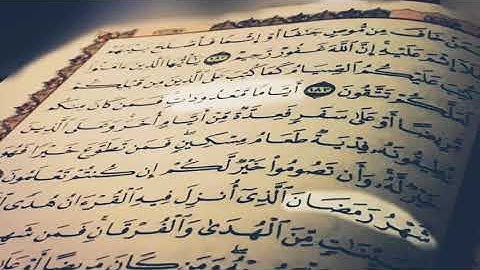 فَمَنْ خَافَ مِن مُّوصٍ جَنَفًا أَوْ إِثْمًا فَأَصْلَحَ بَيْنَهُمْ
فَلَآ إِثْمَ عَلَيْهِ إِنَّ ٱللَّهَ غَفُورٌ رَّحِيمٌ ١٨٢ يَٰٓأَيُّهَا ٱلَّذِينَ ءَامَنُوا۟
كُتِبَ عَلَيْكُمُ ٱلصِّيَامُ كَمَا كُتِبَ عَلَى ٱلَّذِينَ مِن قَبْلِكُمْ
لَعَلَّكُمْ تَتَّقُونَ ١٨٣ أَيَّامًا مَّعْدُودَٰتٍ فَمَن كَانَ مِنكُم
مَّرِيضًا أَوْ عَلَىٰ سَفَرٍ فَعِدَّةٌ مِّنْ أَيَّامٍ أُخَرَ وَعَلَى ٱلَّذِينَ
يُطِيقُونَهُۥ فِدْيَةٌ طَعَامُ مِسْكِينٍ فَمَن تَطَوَّعَ خَيْرًا فَهُوَ
خَيْرٌ لَّهُۥ وَأَن تَصُومُوا۟ خَيْرٌ لَّكُمْ إِن كُنتُمْ تَعْلَمُونَ
شَهْرُ رَمَضَانَ ٱلَّذِىٓ أُنزِلَ فِيهِ ٱلْقُرْءَانُ هُدًى
وَبَيِّنَٰتٍ مِّنَ ٱلْهُدَىٰ وَٱلْفُرْقَانِ فَمَن شَهِدَ
وَمَن كَانَ مَرِيضًا أَوْ